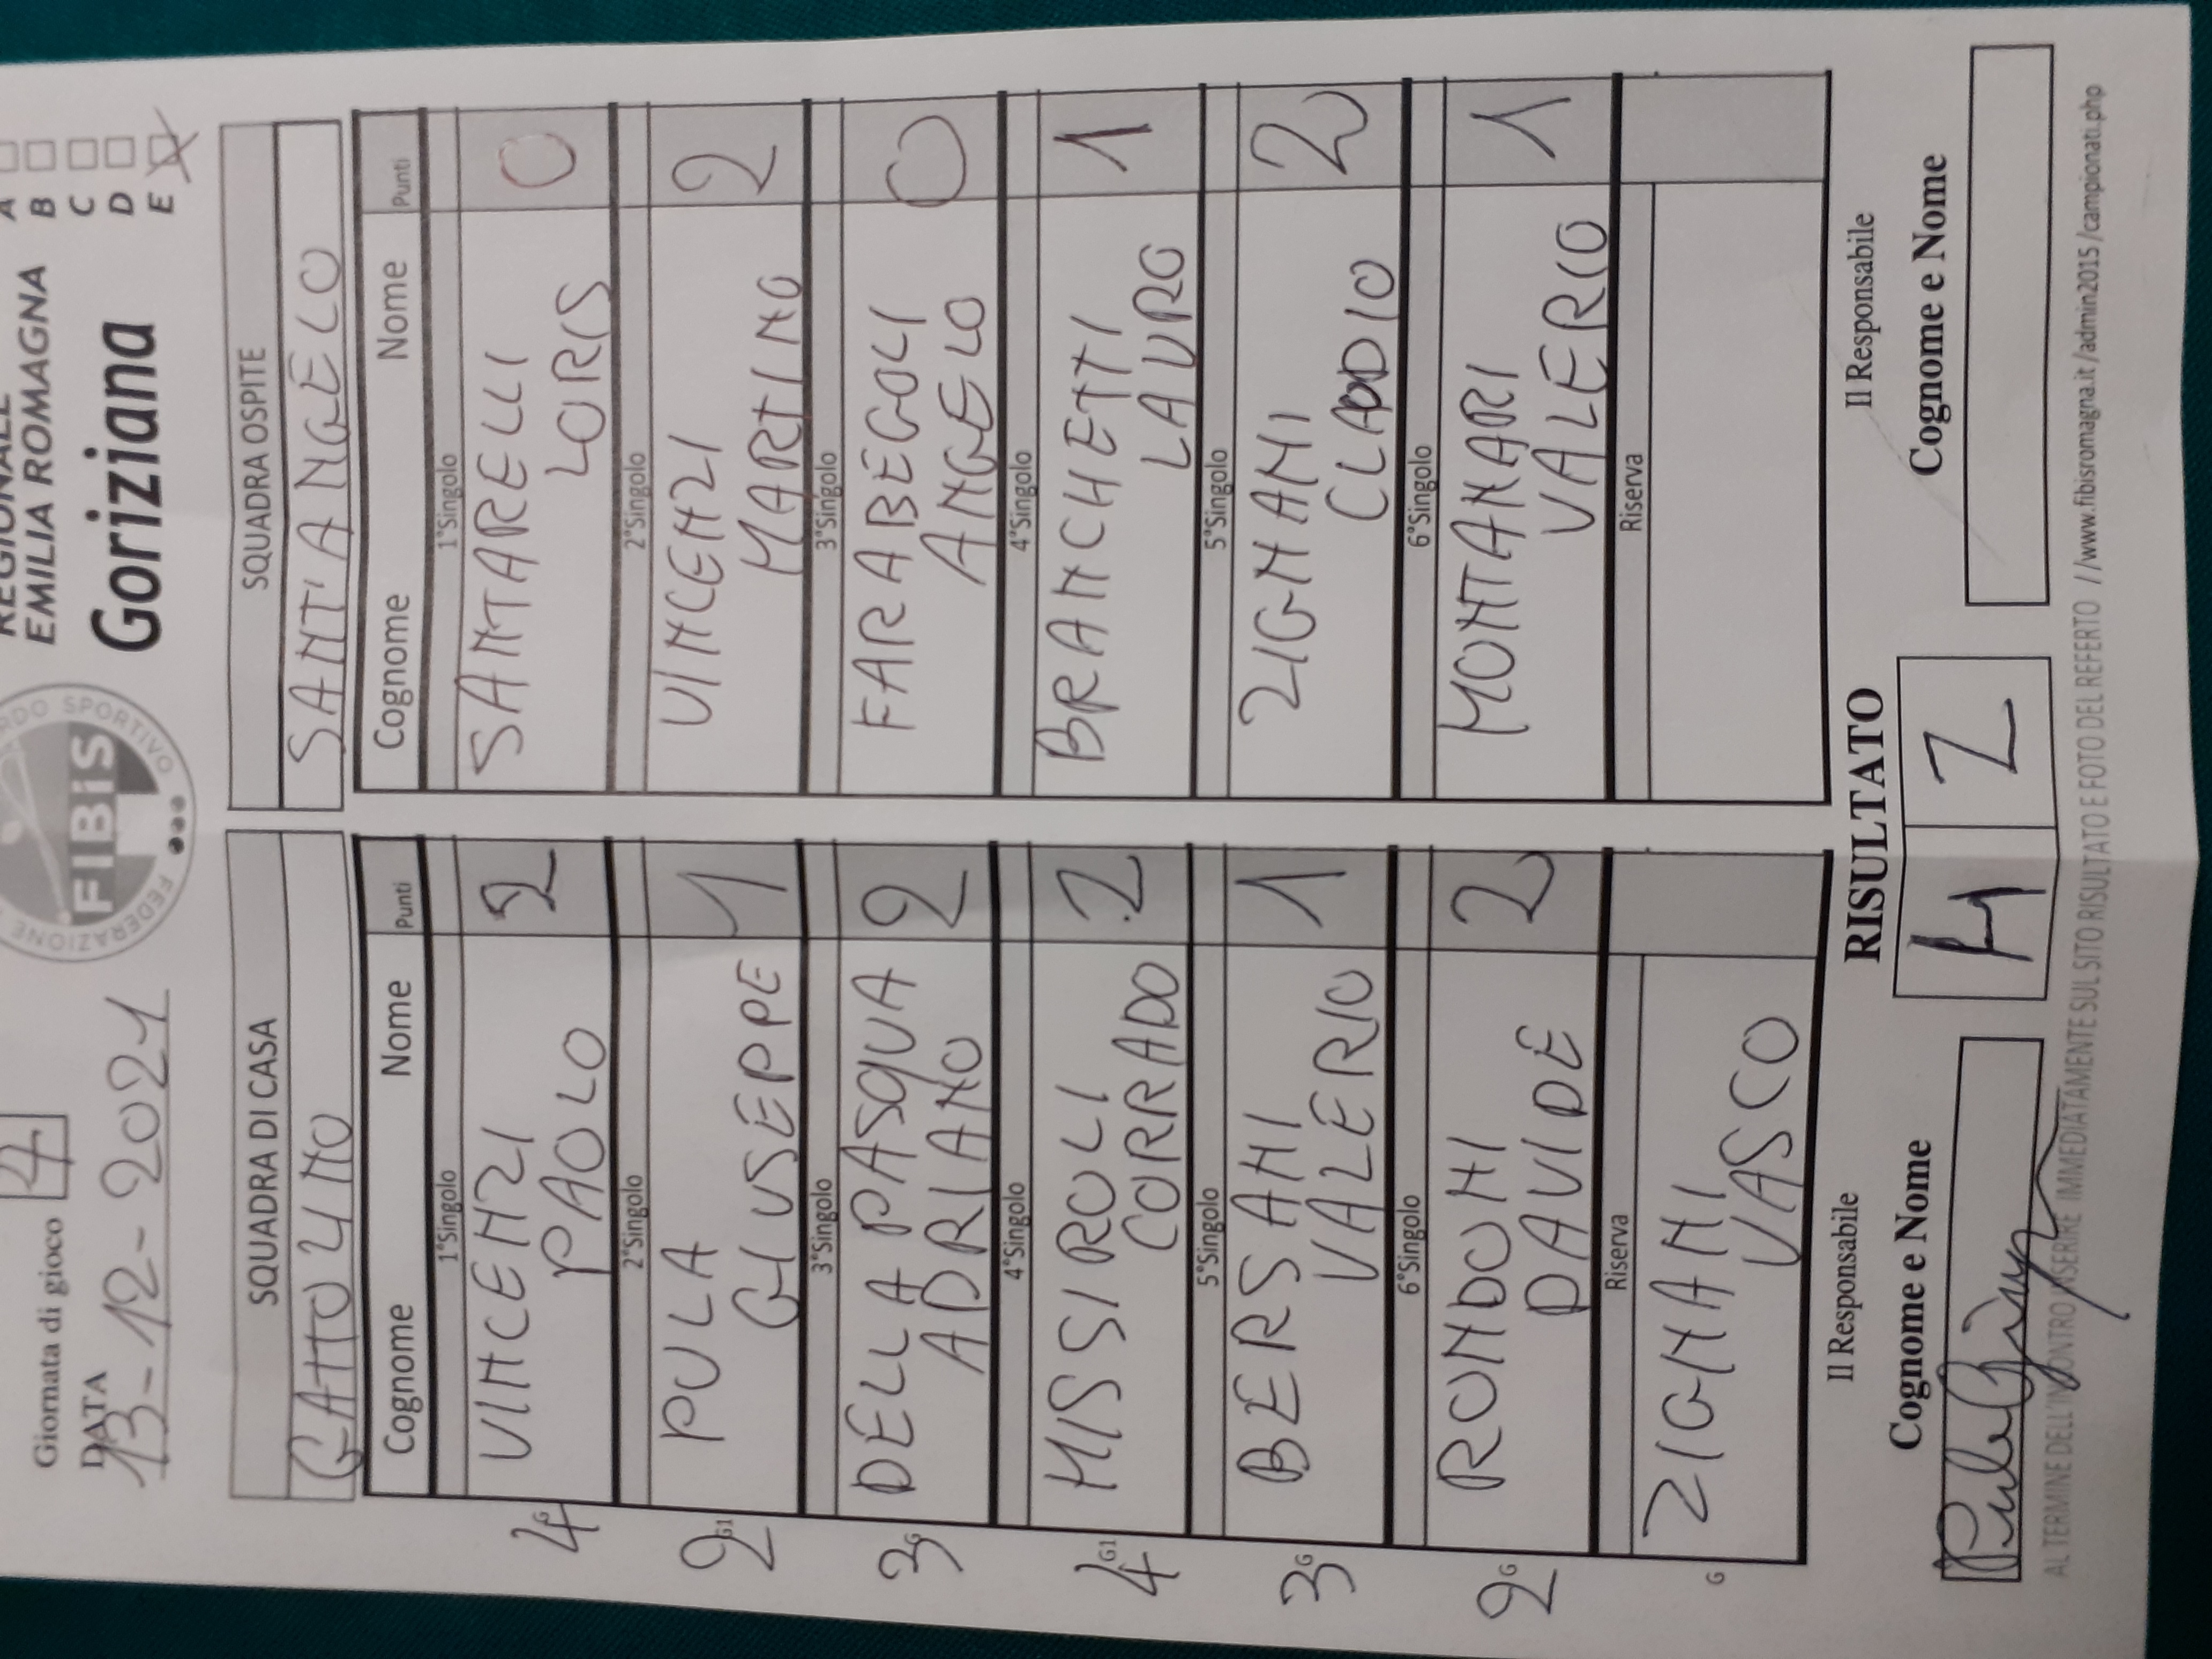 REGIONALE
EMILIA ROMAGNA
Goriziana
A
B
C
D
E
Giornata di gioco 4
DATA
13-12-2021
FIBiS
SQUADRA DI CASA
GATTO UNO
Cognome Nome Punti
1°Singolo
VINCENZI
PAOLO 2
2°Singolo
PULA
GIUSEPPE 1
3°Singolo
DELLA PASQUA
ADRIANO 2
4°Singolo
MISSIROLI
CORRADO 2
5°Singolo
BERSANI
VALERIO 1
6°Singolo
RONDONI
DAVIDE 2
Riserva
ZIGNANI
VASCO
4 G
2 G1
3 G
4 G1
3 G
2 G
G
SQUADRA OSPITE
SANT'ANGELO
Cognome Nome Punti
1°Singolo
SANTARELLI
LORIS 0
2°Singolo
VINCENZI
MARTINO 2
3°Singolo
FARABEGOLI
ANGELO 0
4°Singolo
BRANCHETTI
LAURO 1
5°Singolo
ZIGNANI
CLADDIO 2
6°Singolo
MONTANARI
VALERIO 1
Riserva
RISULTATO
4 2
Il Responsabile
Cognome e Nome
Il Responsabile
Cognome e Nome
AL TERMINE DELL'INCONTRO INSERIRE IMMEDIATAMENTE SUL SITO RISULTATO E FOTO DEL REFERTO //www.fibisromagna.it/admin2015/campionati.php